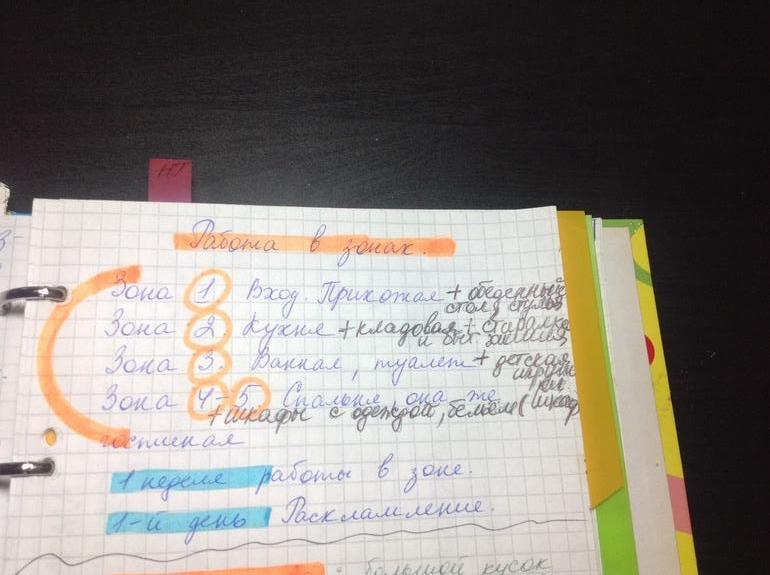 НГ
Работа в зонах.
Зона 1. Вход. Прихожая + обеденный
стол, стулья
Зона 2. Кухня + кладовая + стиралка
и быт. химия
Зона 3. Ванная, туалет + детская
Зона 4-5 Спальня, она же
+ шкафы с одеждой, бельем (шкаф
гостиная
1 неделя работы в зоне.
1-й день Расхламление.
большой кусок